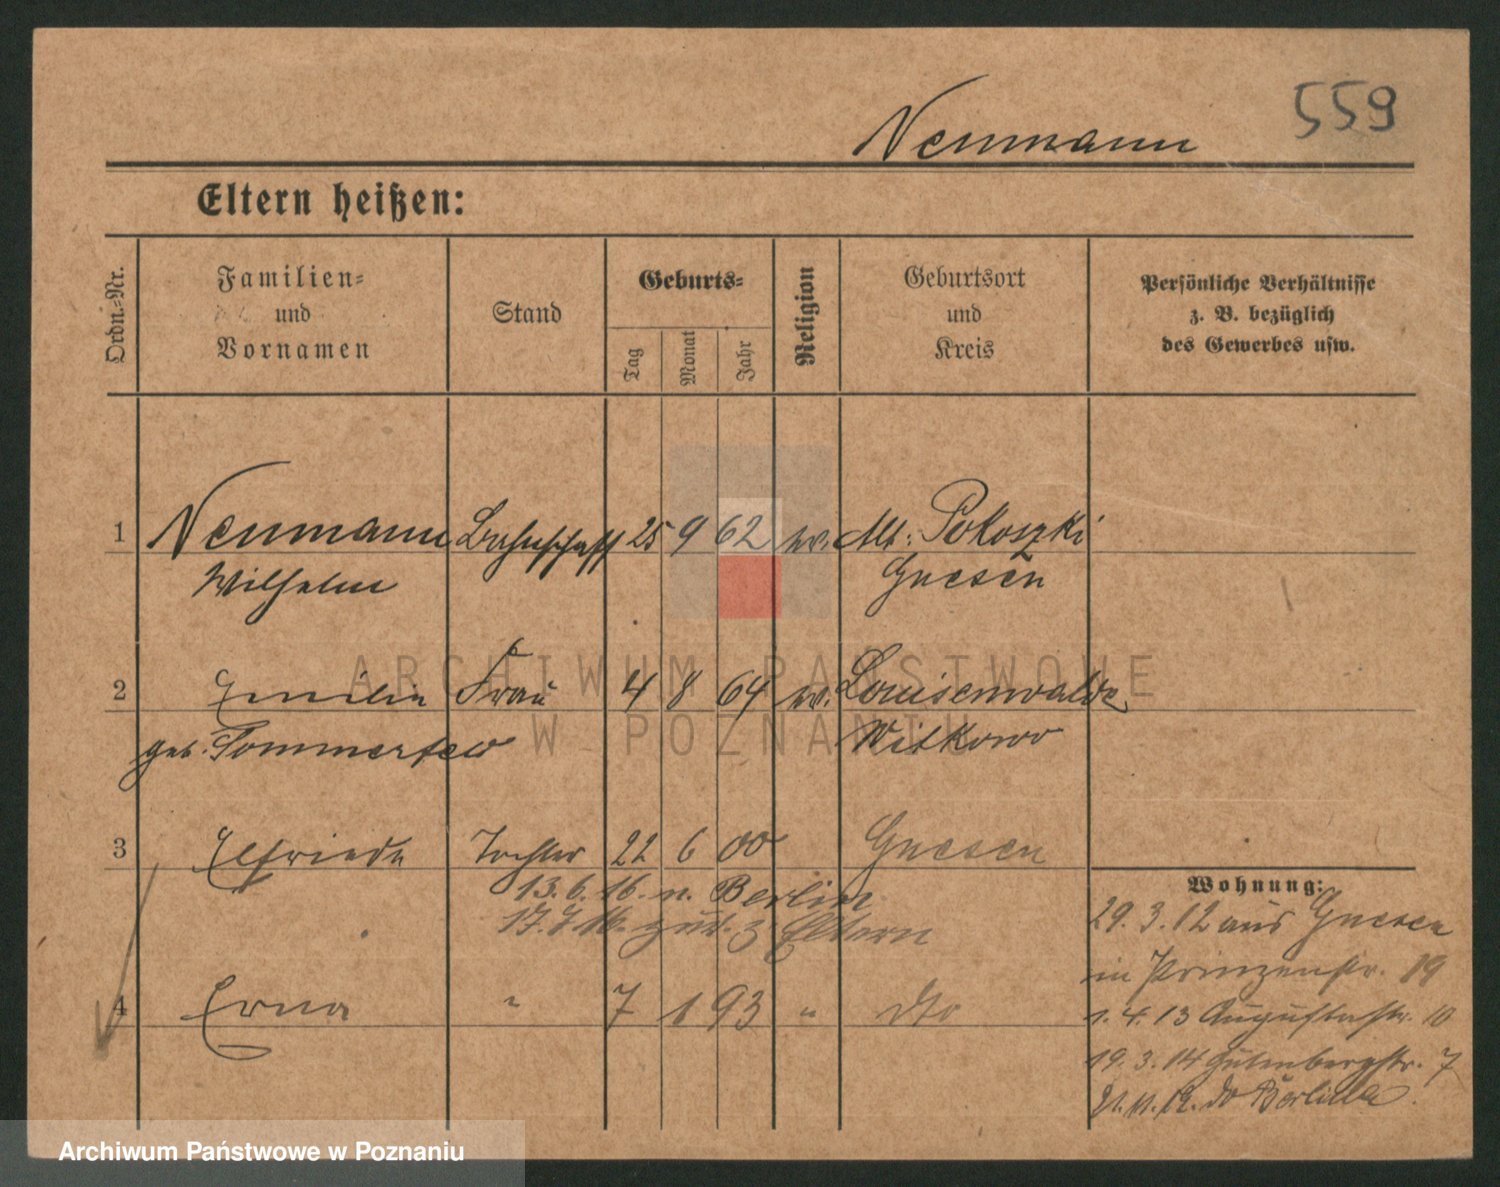 559
Neumann
Eltern heißen:
Ordn.-Nr.
Familien-
und
Vornamen
Stand
Geburts-
Tag
Monat
Jahr
Religion
Geburtsort
und
Kreis
Persönliche Verhältnisse
z. B. bezüglich
des Gewerbes usw.
1 Neumann 25 9 62 Pokoszki
Wilhelm Gnesen
2 Emilie Frau 4 8 64 Louisenwalde
geb. Sommerfeld Witkowo
3 Elfriede Tochter 22 6 00 Gnesen
13. 6. 16. n. Berlin
17. 7. 16. zur. z. Eltern
4 Erna " 7 1 93 " dto
Wohnung:
29. 3. 12 aus Gnesen
in Prinzenstr. 19
1. 4. 13 Augustastr. 10
19. 3. 14 Gutenbergstr. 7
ARCHIWUM PAŃSTWOWE
W POZNANIU
Archiwum Państwowe w Poznaniu